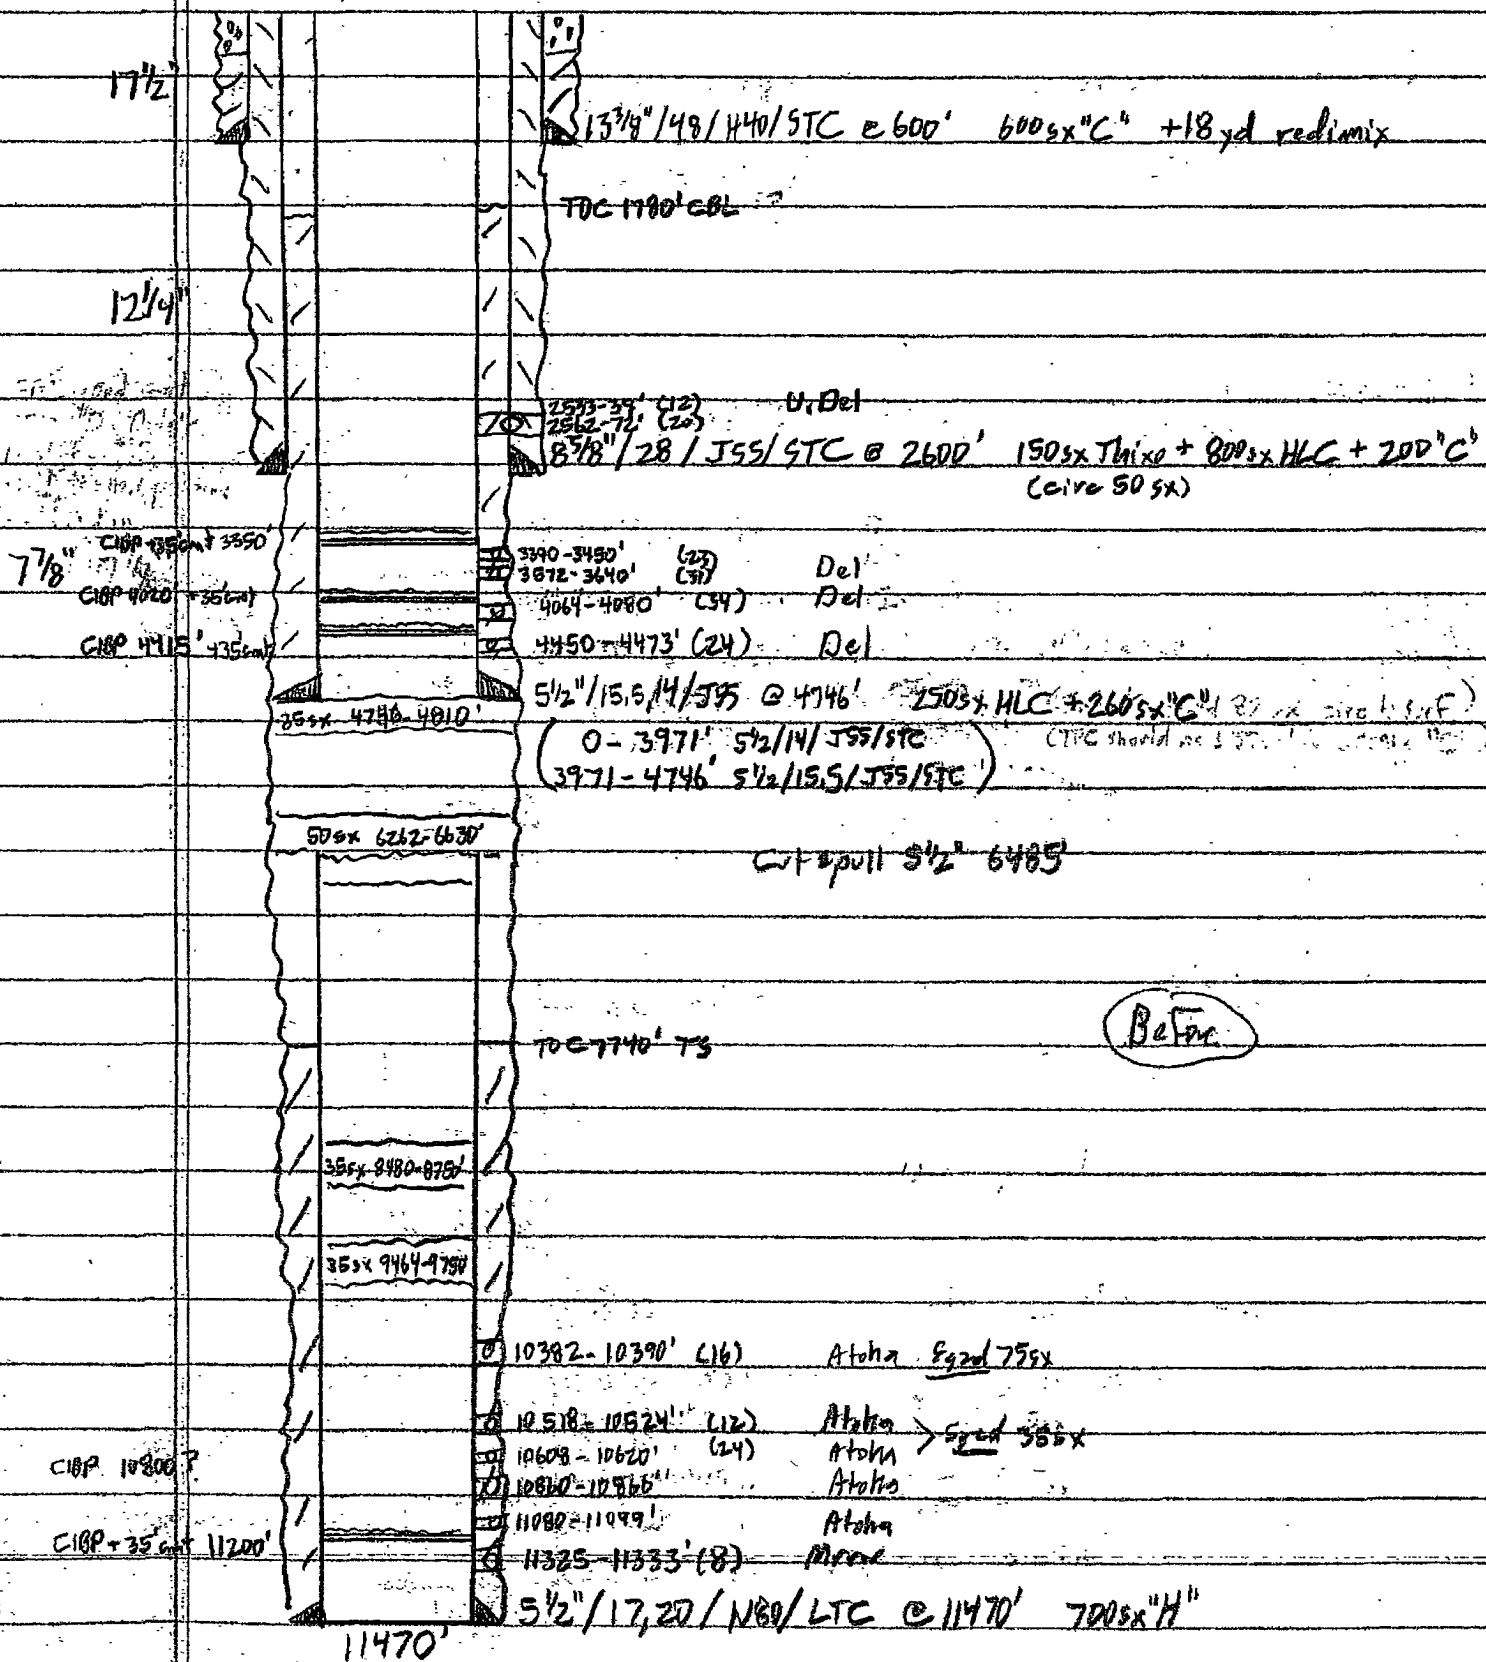 17 1/2"
13 3/8"/48/H40/STC @ 600' 600sx "C" +18 yd redimix
TOC 1780' CBL
12 1/4"
2533-39' (12) U. Del
2562-72' (20)
8 5/8"/28/J55/STC @ 2600' 150sx Thixo + 800sx HLC + 200 "C"
(circ 50 sx)
CIBP +35'cmt 3350'
7 7/8"
3390-3450' (23)
3572-3640' (31) Del
CIBP 4020' +35'cmt
4064-4080' (34) Del
CIBP 4415' +35'cmt
4450-4473' (24) Del
5 1/2"/15.5,14/J55 @ 4746' 250sx HLC + 260sx "C"
35sx 4746-4810'
0-3971' 5 1/2/14/J55/STC
3971-4746' 5 1/2/15.5/J55/STC
50sx 6262-6630'
Cut & pull 5 1/2" 6485'
Before
TOC 7740' TS
35sx 8480-8750'
35sx 9464-9750'
10382-10390' (16) Atoka Sqzd 75sx
10518-10524' (12) Atoka
Sqzd 35sx
10608-10620' (24) Atoka
CIBP 10800?
10860-10866' Atoka
11080-11099' Atoka
CIBP + 35'cmt 11200'
11325-11333' (8) Morrow
5 1/2"/17,20/N80/LTC @ 11470' 700sx "H"
11470'